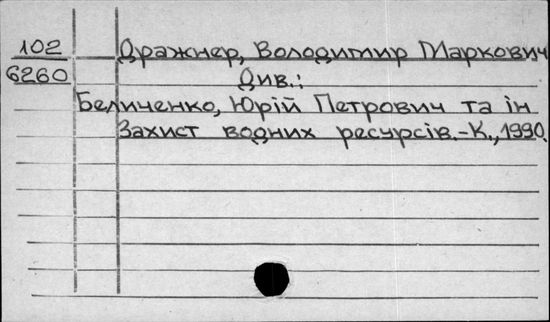 102 Дражнер, Володимир Маркович
6260 Див.:
Беличенко, Юрій Петрович та ін
Захист водних ресурсів.-К.,1990.